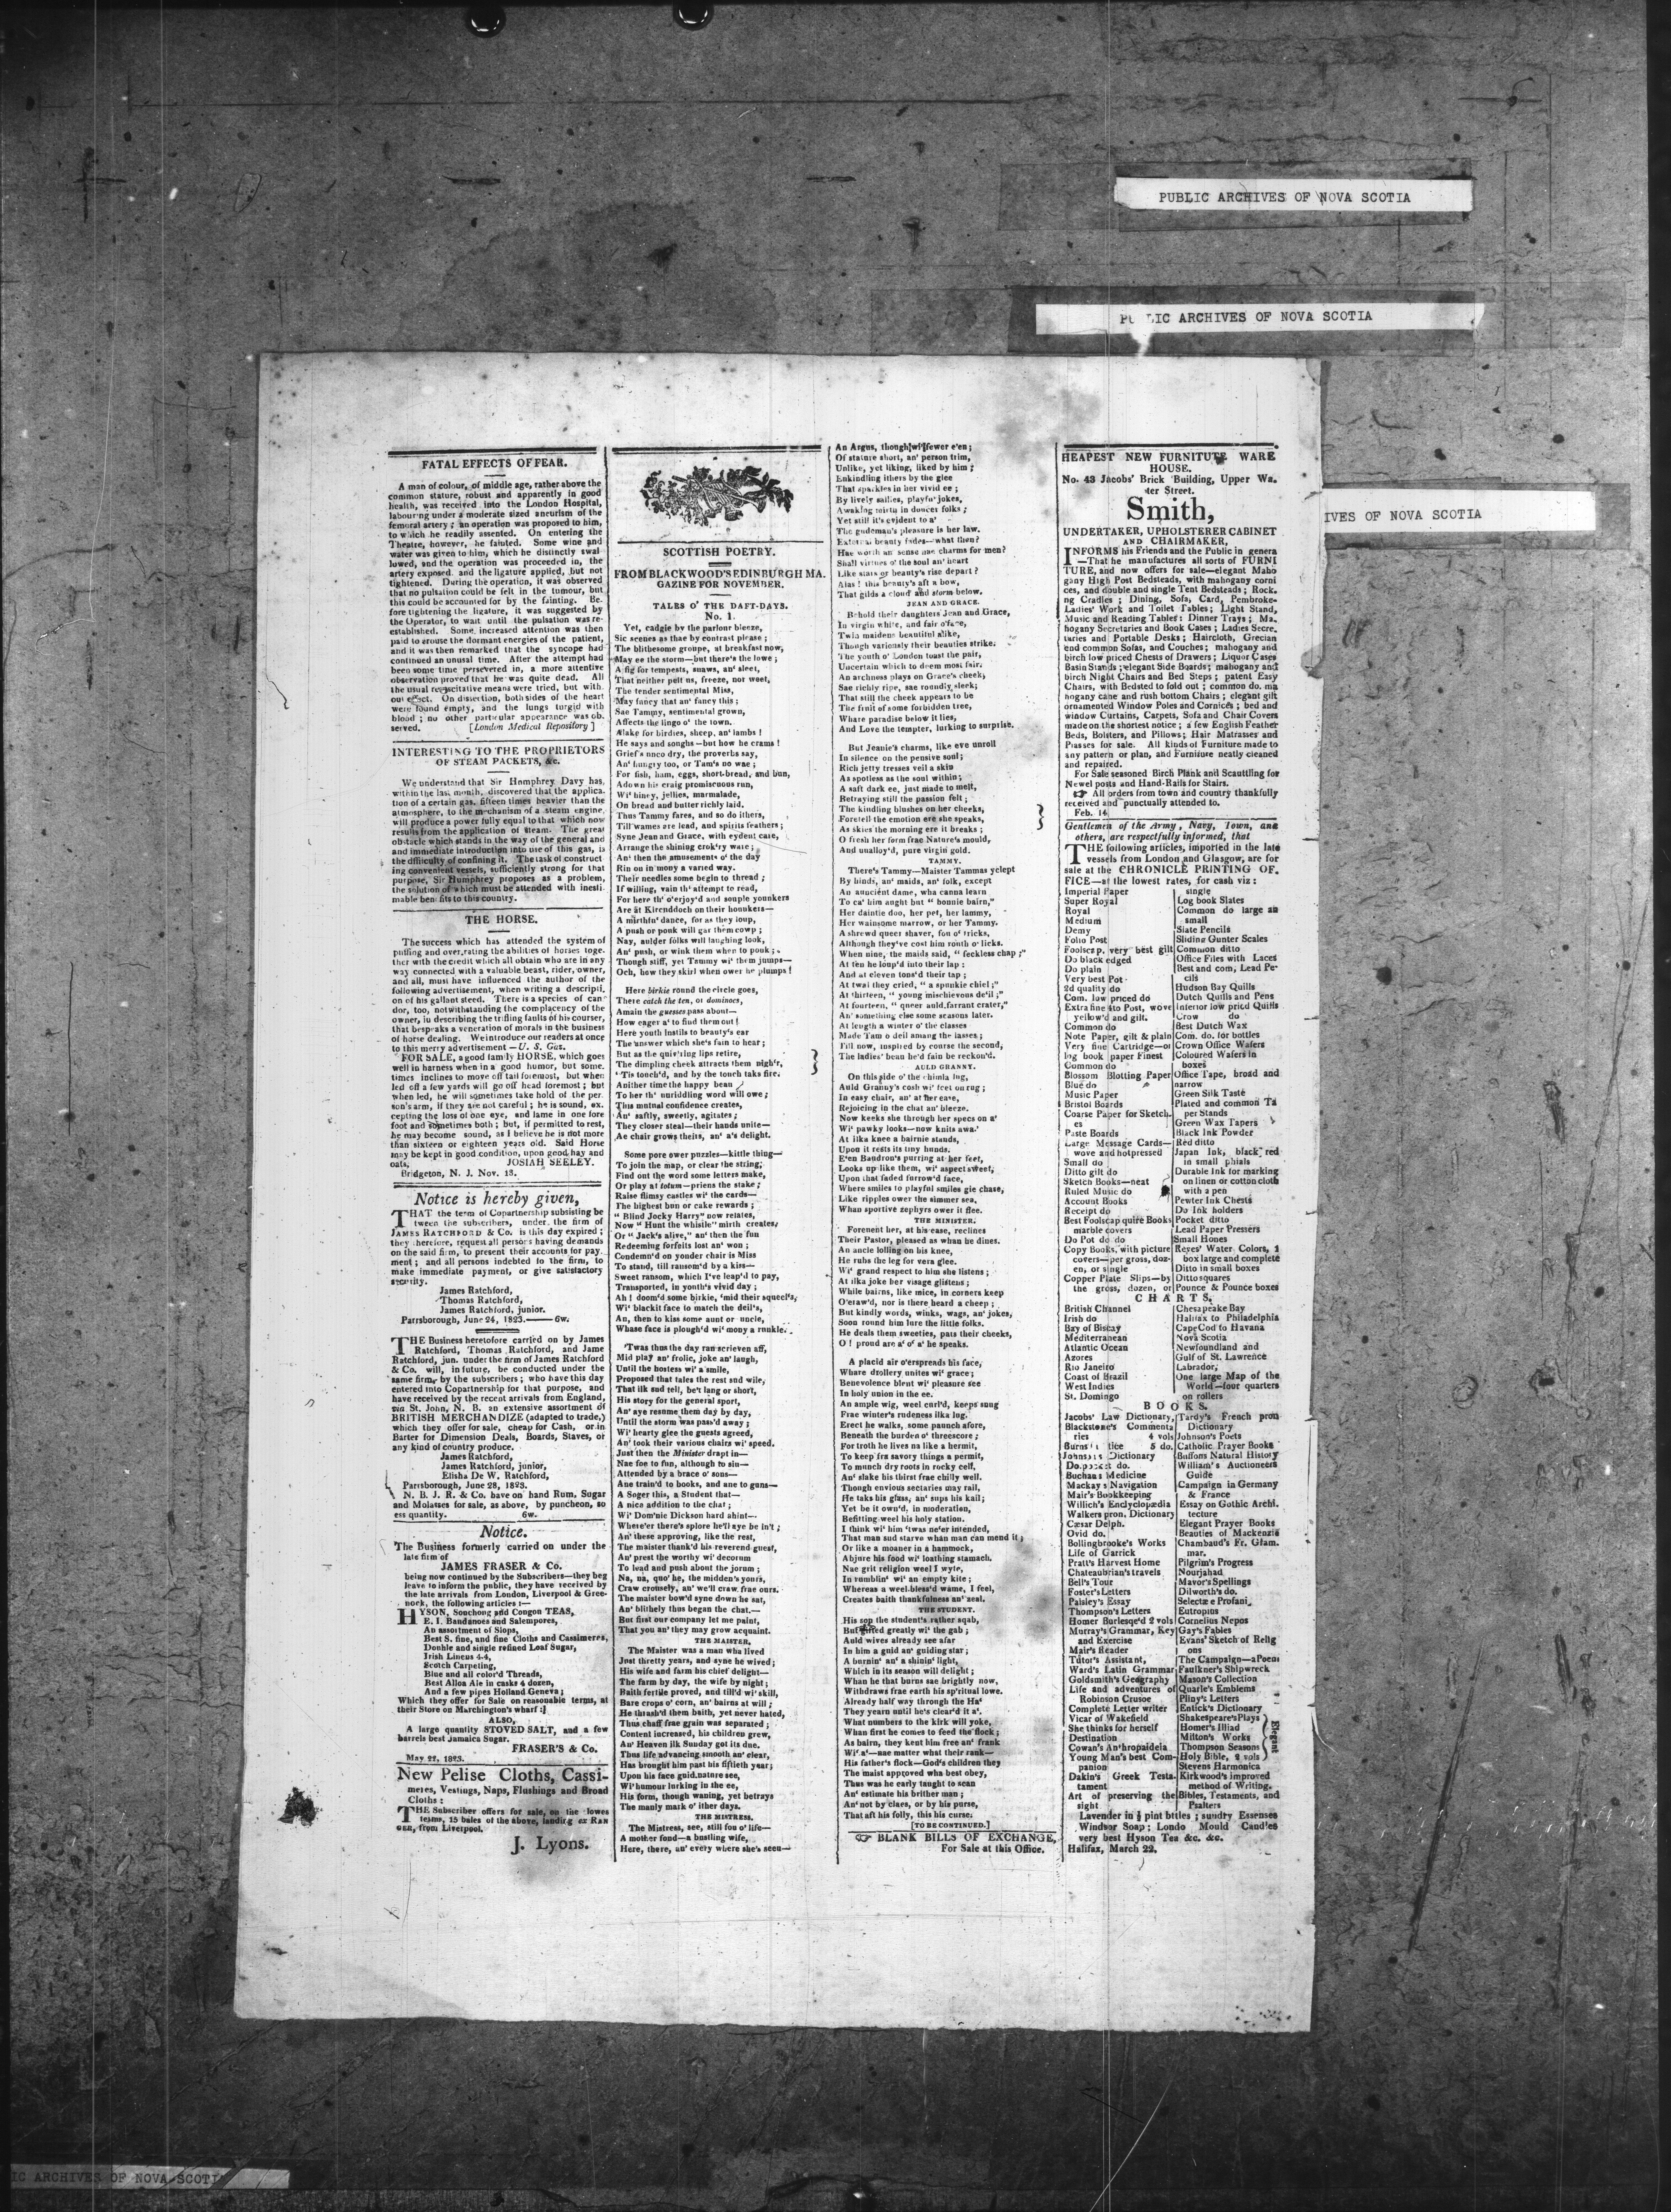 PUBLIC ARCHIVES OF NOVA SCOTIA
LIC ARCHIVES OF NOVA SCOTIA
IVES OF NOVA SCOTIA
FATAL EFFECTS OF FEAR.
A man of colour, of middle age, rather above the
common stature, robust and apparently in good
health, was received into the London Hospital,
labouring under a moderate sized aneurism of the
femoral artery; an operation was proposed to him,
to which he readily assented. On entering the
Theatre, however, he fainted. Some wine and
water was given to him, which he distinctly swal
lowed, and the operation was proceeded in, the
artery exposed. and the ligature applied, but not
tightened. During the operation, it was observed
that no pulsation could be felt in the tumour, but
this could be accounted for by the fainting. Be.
fore tightening the ligature, it was suggested by
the Operator, to wait until the pulsation was re-
established. Some increased attention was then
paid to arouse the dormant energies of the patient,
and it was then remarked that the syncope had
continued an unusual time. After the attempt had
been some time persevered in, a more attentive
observation proved that he was quite dead. All
the usual resuscitative means were tried, but with.
out effect. On dissection, both sides of the heart
were found empty, and the lungs turgid with
blood; no other particular appearance was ob.
served. [London Medical Repository]
INTERESTING TO THE PROPRIETORS
OF STEAM PACKETS, &c.
We understand that Sir Humphrey Davy has,
within the last month, discovered that the applica.
tion of a certain gas, fifteen times heavier than the
atmosphere, to the mechanism of a steam engine,
will produce a power fully equal to that which now
results from the application of steam. The great
obstacle which stands in the way of the general and
and immediate introduction into use of this gas, is
the difficulty of confining it. The task of construct
ing convenient vessels, sufficiently strong for that
purpose, Sir Humphrey proposes as a problem,
the solution of which must be attended with inesti
mable benefits to this country.
THE HORSE.
The success which has attended the system of
puffing and over,rating the abilities of horses toge.
ther with the credit which all obtain who are in any
way connected with a valuable beast, rider, owner,
and all, must have influenced the author of the
following advertisement, when writing a descripti,
on of his gallant steed. There is a species of can
dor, too, notwithstanding the complacency of the
owner, in describing the trifling faults of his courser,
that bespraks a veneration of morals in the business
of horse dealing. We introduce our readers at once
to this merry advertisement—U. S. Gaz.
FOR SALE, a good family HORSE, which goes
well in harness when in a good humor, but some.
times inclines to move off tail foremost, but when
led off a few yards will go off head foremost; but
when led, he will sometimes take hold of the per
son's arm, if they are not careful; he is sound, ex.
cepting the loss of one eye, and lame in one fore
foot and sometimes both; but, if permitted to rest,
he may become sound, as I believe he is not more
than sixteen or eighteen years old. Said Horse
may be kept in good condition, upon good hay and
oats, JOSIAH SEELEY.
Bridgeton, N. J. Nov. 13.
Notice is hereby given,
THAT the term of Copartnership subsisting be
tween the subscribers, under the firm of
JAMES RATCHFORD & Co. is this day expired;
they therefore, request all persons having demands
on the said firm, to present their accounts for pay.
ment; and all persons indebted to the firm, to
make immediate payment, or give satisfactory
security.
James Ratchford,
Thomas Ratchford,
James Ratchford, junior.
Parrsborough, June 24, 1823.——6w.
THE Business heretofore carried on by James
Ratchford, Thomas Ratchford, and Jame
Ratchford, jun. under the firm of James Ratchford
& Co. will, in future, be conducted under the
same firm, by the subscribers; who have this day
entered into Copartnership for that purpose, and
have received by the recent arrivals from England,
via St. John, N. B. an extensive assortment of
BRITISH MERCHANDIZE (adapted to trade,)
which they offer for sale, cheap for Cash, or in
Barter for Dimension Deals, Boards, Staves, or
any kind of country produce.
James Ratchford,
James Ratchford, junior,
Elisha De W. Ratchford,
Parrsborough, June 28, 1823.
N. B. J. R. & Co. have on hand Rum, Sugar
and Molasses for sale, as above, by puncheon, so
ess quantity. 6w.
Notice.
The Business formerly carried on under the
late firm of
JAMES FRASER & Co.
being now continued by the Subscribers—they beg
leave to inform the public, they have received by
the late arrivals from London, Liverpool & Gree-
nock, the following articles:—
HYSON, Souchong and Congou TEAS,
E. I. Bandanoes and Salempores,
An assortment of Slops,
Best S. fine, and fine Cloths and Cassimeres,
Double and single refined Loaf Sugar,
Irish Linens 4-4,
Scotch Carpeting,
Blue and all color'd Threads,
Best Alloa Ale in casks 4 dozen,
And a few pipes Holland Geneva;
Which they offer for Sale on reasonable terms, at
their Store on Marchington's wharf:
ALSO,
A large quantity STOVED SALT, and a few
barrels best Jamaica Sugar.
FRASER'S & Co.
May 22, 1823.
New Pelise Cloths, Cassi-
meres, Vestings, Naps, Flushings and Broad
Cloths:
THE Subscriber offers for sale, on the lowes
terms, 15 bales of the above, landing ex RAN
GER, from Liverpool.
J. Lyons.
SCOTTISH POETRY.
FROM BLACKWOOD'S EDINBURGH MA.
GAZINE FOR NOVEMBER.
TALES O' THE DAFT-DAYS.
No. 1.
Yet, cadgie by the parlour bleeze,
Sic scenes as thae by contrast please;
The blithesome groupe, at breakfast now,
May ee the storm—but there's the lowe;
A fig for tempests, snaws, an' sleet,
That neither pelt us, freeze, nor weet,
The tender sentimental Miss,
May fancy that an' fancy this;
Sae Tammy, sentimental grown,
Affects the lingo o' the town.
Alake for birdies, sheep, an' lambs!
He says and soughs—but how he crams!
Grief's unco dry, the proverbs say,
An' hungry too, or Tam's no wae;
For fish, ham, eggs, short-bread, and bun,
Adown his craig promiscuous run,
Wi' hiney, jellies, marmalade,
On bread and butter richly laid.
Thus Tammy fares, and so do ithers,
Till wames are lead, and spirits feathers;
Syne Jean and Grace, with eydent care,
Arrange the shining crok'ry ware;
An' then the amusements o' the day
Rin on in mony a varied way.
Their needles some begin to thread;
If willing, vain th' attempt to read,
For here th' o'erjoy'd and souple younkers
Are at Kirnddoch on their hounkers—
A mirthin' dance, for as they loup,
A push or pouk will gar them cowp;
Nay, aulder folks will laughing look,
An' push, or wink them when to pouk;
Though stiff, yet Tammy wi' them jumps—
Och, how they skirl when ower he plumps!
Here birkie round the circle goes,
There catch the ten, or dominoes,
Amain the guesses pass about—
How eager a' to find them out!
Here youth instils to beauty's ear
The answer which she's fain to hear;
But as the quiv'ring lips retire,
The dimpling cheek attracts them nigh'r,
'Tis touch'd, and by the touch taks fire.
Anither time the happy beau
To her th' unriddling word will owe;
This mutual confidence creates,
An' saftly, sweetly, agitates;
They closer steal—their hands unite—
Ae chair grows theirs, an' a's delight.
Some pore ower puzzles—kittle thing—
To join the map, or clear the string;
Find out the word some letters make,
Or play at totum—priens the stake;
Raise flimsy castles wi' the cards—
The highest bun or cake rewards;
"Blind Jocky Harry" now relates,
Now "Hunt the whistle" mirth creates/
Or "Jack's alive," an' then the fun
Redeeming forfeits lost an' won;
Condemn'd on yonder chair is Miss
To stand, till ransom'd by a kiss—
Sweet ransom, which I've leap'd to pay,
Transported, in youth's vivid day;
Ah! doom'd some birkie, 'mid their squeel's,
Wi' blackit face to match the deil's,
An, then to kiss some aunt or uncle,
Whase face is plough'd wi' mony a runkle.
'Twas thus the day ran scrieven aff,
Mid play an' frolic, joke an' laugh,
Until the hostess wi' a smile,
Proposed that tales the rest sud wile,
That ilk sud tell, be't lang or short,
His story for the general sport,
An' aye resume them day by day,
Until the storm was pass'd away;
Wi' hearty glee the guests agreed,
An' took their various chairs wi' speed.
Just then the Minister drapt in—
Nae foe to fun, although to sin—
Attended by a brace o' sons—
Ane train'd to books, and ane to guns—
A Soger this, a Student that—
A nice addition to the chat;
Wi' Dom'nie Dickson hard ahint—
Where'er there's splore he'll aye be in't;
An' these approving, like the rest,
The maister thank'd his reverend guest,
An' prest the worthy wi' decorum
To lead and push about the jorum;
Na, na, quo' he, the midden's yours,
Craw crousely, an' we'll craw frae ours.
The maister bow'd syne down he sat,
An' blithely thus began the chat.—
But first our company let me paint,
That you an' they may grow acquaint.
THE MAISTER.
The Maister was a man who lived
Just thretty years, and syne he wived;
His wife and farm his chief delight—
The farm by day, the wife by night;
Baith fertile proved, and till'd wi' skill,
Bare crops o' corn, an' bairns at will;
He thrash'd them baith, yet never hated,
Thus chaff frae grain was separated;
Content increased, his children grew,
An' Heaven ilk Sunday got its due.
Thus life advancing smooth an' clear,
Has brought him past his fiftieth year;
Upon his face guid.nature see,
Wi' humour lurking in the ee,
His form, though waning, yet betrays
The manly mark o' ither days.
THE MISTRESS.
The Mistress, see, still fou o' life—
A mother fond—a bustling wife,
Here, there, an' every where she's seen—
An Argus, though wi' fewer e'en;
Of stature short, an' person trim,
Unlike, yet liking, liked by him;
Enkindling ithers by the glee
That sparkles in her vivid ee;
By lively sallies, playfu' jokes,
Awaking mirth in douces folks;
Yet still it's evident to a'
The gudeman's pleasure is her law.
External beauty fades—what then?
Hae worth an' sense nae charms for men?
Shall virtues o' the soul an' heart
Like stars or beauty's rise depart?
Alas! this beauty's aft a bow,
That gilds a cloud and storm below.
JEAN AND GRACE.
Behold their daughters Jean and Grace,
In virgin white, and fair o' face,
Twin maidens beautiful alike,
Though variously their beauties strike.
The youth o' London toast the pair,
Uncertain which to deem most fair.
An archness plays on Grace's cheek,
Sae richly ripe, sae roundly sleek;
That still the cheek appears to be
The fruit of some forbidden tree,
Whare paradise below it lies,
And Love the tempter, lurking to surprise.
But Jeanie's charms, like eve unroll
In silence on the pensive soul;
Rich jetty tresses veil a skin
As spotless as the soul within;
A saft dark ee, just made to melt,
Betraying still the passion felt;
The kindling blushes on her cheeks,
Foretell the emotion ere she speaks,
As skies the morning ere it breaks;
O fresh her form frae Nature's mould,
And unalloy'd, pure virgin gold.
TAMMY.
There's Tammy—Maister Tammas yclept
By hinds, an' maids, an' folk, except
An auncient dame, wha canna learn
To ca' him aught but "bonnie bairn,"
Her daintie doo, her pet, her lammy,
Her wainsome marrow, or her Tammy.
A shrewd queer shaver, fou o' tricks,
Although they've cost him routh o' licks.
When nine, the maids said, "feckless chap;"
At ten he loup'd into their lap;
And at eleven tous'd their tap;
At twal they cried, "a spunkie chiel;"
At thirteen, "young mischievous de'il;"
At fourteen, "queer auld.farrant crater,"
An' something else some seasons later.
At length a winter o' the classes
Made Tam o deil amang the lasses;
Till now, inspired by course the second,
The ladies' beau he'd fain be reckon'd.
AULD GRANNY.
On this side o' the chimla lug,
Auld Granny's cosh wi' feet on rug;
In easy chair, an' at her ease,
Rejoicing in the chat an' bleeze.
Now keeks she through her specs on a'
Wi' pawky looks—now knits awa.'
At ilka knee a bairnie stands,
Upon it rests its tiny hands.
E'en Baudron's purring at her feet,
Looks up like them, wi' aspect sweet,
Upon that faded furrow'd face,
Where smiles to playful smiles gie chase,
Like ripples ower the simmer sea,
Whan sportive zephyrs ower it flee.
THE MINISTER.
Forenent her, at his ease, reclines
Their Pastor, pleased as whan he dines.
An ancle lolling on his knee,
He rubs the leg for vera glee.
Wi' grand respect to him she listens;
At ilka joke her visage glistens;
While bairns, like mice, in corners keep
O'eraw'd, nor is there heard a cheep;
But kindly words, winks, wags, an' jokes,
Soon round him lure the little folks.
He deals them sweeties, pats their cheeks,
O! proud are a' o' a' he speaks.
A placid air o'erspreads his face,
Whare drollery unites wi' grace;
Benevolence blent wi' pleasure see
In holy union in the ee.
An ample wig, weel curl'd, keeps snug
Frae winter's rudeness ilka lug.
Erect he walks, some paunch afore,
Beneath the burden o' threescore;
For troth he lives na like a hermit,
To keep fra savory things a permit,
To munch dry roots in rocky celf,
An' slake his thirst frae chilly well.
Though envious sectaries may rail,
He taks his glass, an' sups his kail;
Yet be it own'd, in moderation,
Befitting weel his holy station.
I think wi' him 'twas ne'er intended,
That man sud starve whan man can mend it;
Or like a moaner in a hammock,
Abjure his food wi' loathing stamach.
Nae grit religion weel I wyte,
In rumblin' wi' an empty kite;
Whereas a weel.bless'd wame, I feel,
Creates baith thankfulness an' zeal.
THE STUDENT.
His son the student's rather squab,
But gifted greatly wi' the gab;
Auld wives already see afar
In him a guid an' guiding star;
A burnin' an' a shinin' light,
Which in its season will delight;
Whan he that burns sae brightly now,
Withdraws frae earth his sp'ritual lowe.
Already half way through the Ha'
They yearn until he's clear'd it a'.
What numbers to the kirk will yoke,
Whan first he comes to feed the flock;
As bairn, they kent him free an' frank
Wi' a'—nae matter what their rank—
His father's flock—God's children they
The maist approved wha best obey,
Thus was he early taught to scan
An' estimate his brither man;
An' not by claes, or by his purse,
That aft his folly, this his curse.
[TO BE CONTINUED.]
☞ BLANK BILLS OF EXCHANGE,
For Sale at this Office.
HEAPEST NEW FURNITURE WARE
HOUSE.
No. 43 Jacobs' Brick Building, Upper Wa.
ter Street.
Smith,
UNDERTAKER, UPHOLSTERER CABINET
AND CHAIRMAKER,
INFORMS his Friends and the Public in genera
—That he manufactures all sorts of FURNI
TURE, and now offers for sale—elegant Maho
gany High Post Bedsteads, with mahogany corni
ces, and double and single Tent Bedsteads; Rock.
ng Cradles; Dining, Sofa, Card, Pembroke-
Ladies' Work and Toilet Tables; Light Stand,
Music and Reading Tables: Dinner Trays; Ma.
hogany Secretaries and Book Cases; Ladies Secre.
taries and Portable Desks; Haircloth, Grecian
end common Sofas, and Couches; mahogany and
birch low priced Chests of Drawers; Liquor Cases
Basin Stands; elegant Side Boards; mahogany and
birch Night Chairs and Bed Steps; patent Easy
Chairs, with Bedsted to fold out; common do. ma
hogany cane and rush bottom Chairs; elegant gilt
ornamented Window Poles and Cornices; bed and
window Curtains, Carpets, Sofa and Chair Covers
made on the shortest notice; a few English Feather
Beds, Bolsters, and Pillows; Hair Matrasses and
Piasses for sale. All kinds of Furniture made to
any pattern or plan, and Furniture neatly cleaned
and repaired.
For Sale seasoned Birch Plank and Scauttling for
Newel posts and Hand-Rails for Stairs.
☞ All orders from town and country thankfully
received and punctually attended to.
Feb. 14
Gentlemen of the Army, Navy, Town, ana
others, are respectfully informed, that
THE following articles, imported in the late
vessels from London and Glasgow, are for
sale at the CHRONICLE PRINTING OF.
FICE—at the lowest rates, for cash viz:
Imperial Paper
Super Royal
Royal
Medium
Demy
Folio Post
Foolscap, very best gilt
Do black edged
Do plain
Very best Pot
2d quality do
Com. low priced do
Extra fine 4to Post, wove
yellow'd and gilt.
Common do
Note Paper, gilt & plain
Very fine Cartridge—or
log book paper Finest
Common do
Blossom Blotting Paper
Blue do
Music Paper
Bristol Boards
Coarse Paper for Sketch.
es
Paste Boards
Large Message Cards—
wove and hotpressed
Small do
Ditto gilt do
Sketch Books—neat
Ruled Music do
Account Books
Receipt do
Best Foolscap quire Books
marble covers
Do Pot do do
Copy Books, with picture
covers—per gross, doz-
en, or single
Copper Plate Slips—by
the gross, dozen, or
single
Log book Slates
Common do large an
small
Slate Pencils
Sliding Gunter Scales
Common ditto
Office Files with Laces
Best and com, Lead Pe-
cils
Hudson Bay Quills
Dutch Quills and Pens
Inferior low pricd Quills
Crow do
Best Dutch Wax
Com. do. for bottles
Crown Office Wafers
Coloured Wafers in
boxes
Office Tape, broad and
narrow
Green Silk Taste
Plated and common Ta
per Stands
Green Wax Tapers
Black Ink Powder
Red ditto
Japan Ink, black, red
in small phials
Durable Ink for marking
on linen or cotton cloth
with a pen
Pewter Ink Chests
Do Ink holders
Pocket ditto
Lead Paper Pressers
Small Hones
Reyes' Water Colors, 1
box large and complete
Ditto in small boxes
Ditto squares
Pounce & Pounce boxes
CHARTS.
British Channel
Irish do
Bay of Biscay
Mediterranean
Atlantic Ocean
Azores
Rio Janeiro
Coast of Brazil
West Indies
St. Domingo
Chesapeake Bay
Halifax to Philadelphia
Cape Cod to Havana
Nova Scotia
Newfoundland and
Gulf of St. Lawrence
Labrador,
One large Map of the
World—four quarters
on rollers
BOOKS.
Jacobs' Law Dictionary,
Blackstone's Commenta
ries 4 vols
Burns's 5 do.
Johnson's Dictionary
Do. pocket do.
Buchans Medicine
Mackay s Navigation
Mair's Bookkeeping
Willich's Encyclopædia
Walkers pron. Dictionary
Cæsar Delph.
Ovid do.
Bollingbrooke's Works
Life of Garrick
Pratt's Harvest Home
Chateaubrian's travels
Bell's Tour
Foster's Letters
Paisley's Essay
Thompson's Letters
Homer Burlesqe'd 2 vols
Murray's Grammar, Key
and Exercise
Mair's Reader
Tutor's Assistant,
Ward's Latin Grammar
Goldsmith's Geography
Life and adventures of
Robinson Crusoe
Complete Letter writer
Vicar of Wakefield
She thinks for herself
Destination
Cowan's Anthropaideia
Young Man's best Com-
panion
Dakin's Greek Testa-
tament
Art of preserving the
sight
Tardy's French pron
Dictionary
Johnson's Poets
Catholic Prayer Books
Buffons Natural History
William's Auctioneers
Guide
Campaign in Germany
& France
Essay on Gothic Archi.
tecture
Elegant Prayer Books
Beauties of Mackenzie
Chambaud's Fr. Gram.
mar.
Pilgrim's Progress
Nourjahad
Mavor's Spellings
Dilworth's do.
Selectæ Profani,
Eutropius
Cornelius Nepos
Gay's Fables
Evans' Sketch of Relig
ons
The Campaign—a Poem
Faulkner's Shipwreck
Mason's Collection
Quarle's Emblems
Pliny's Letters
Entick's Dictionary
Shakespeare's Plays
Homer's Illiad
Milton's Works
Thompson Seasons
Holy Bible, 2 vols
Elegant
Stevens Harmonica
Kirkwood's improved
method of Writing.
Bibles, Testaments, and
Psalters
Lavender in ½ pint bttles; sundry Essenses
Windsor Soap; Londo Mould Candles
very best Hyson Tea &c. &c.
Halifax, March 22.
IC ARCHIVES OF NOVA SCOTIA